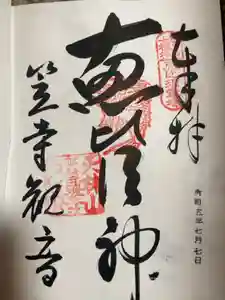 奉拝
令和三年七月七日
恵比須神
笠寺観音